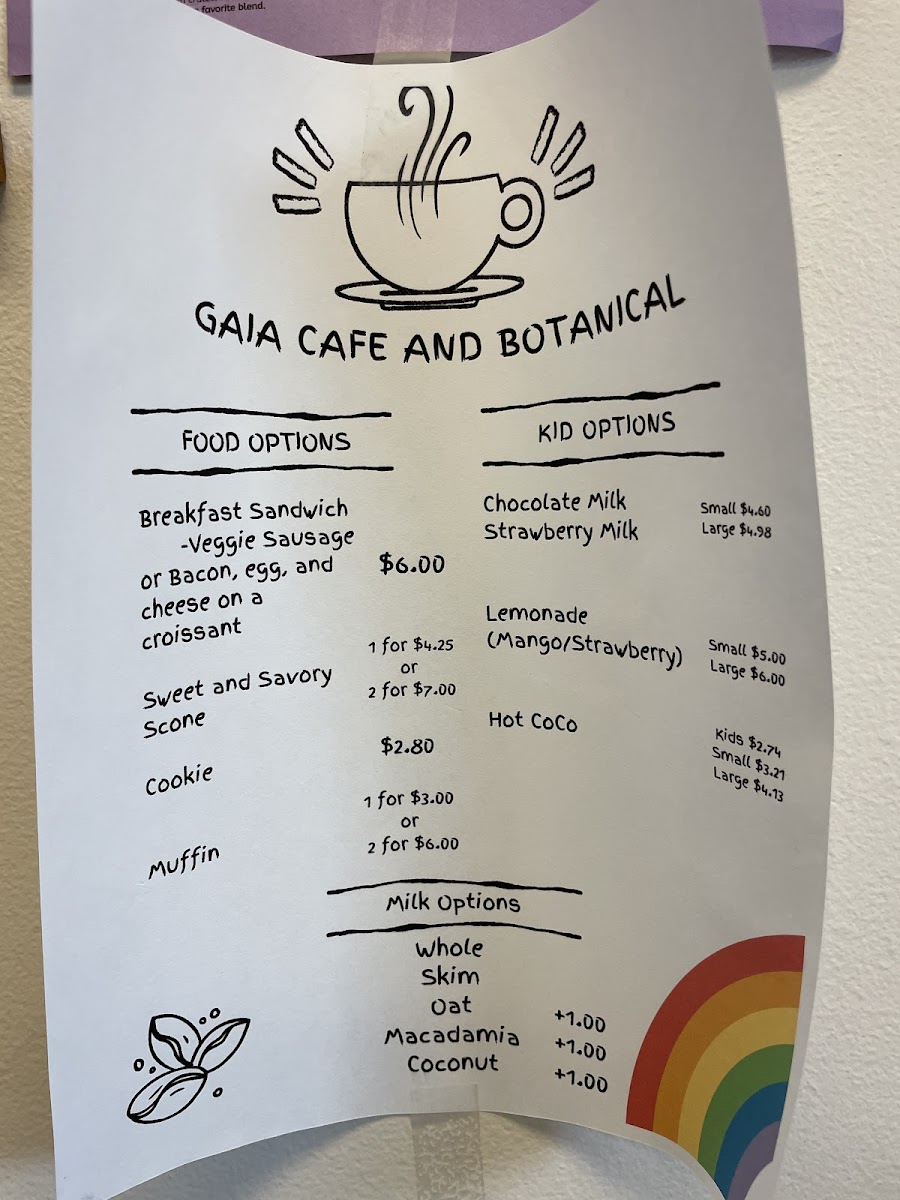 favorite blend.
GAIA CAFE AND BOTANICAL
FOOD OPTIONS
Breakfast Sandwich
-Veggie Sausage
or Bacon, egg, and
cheese on a
croissant
$6.00
Sweet and Savory
Scone
1 for $4.25
or
2 for $7.00
Cookie
$2.80
Muffin
1 for $3.00
or
2 for $6.00
KID OPTIONS
Chocolate Milk
Strawberry Milk
Small $4.60
Large $4.98
Lemonade
(Mango/Strawberry)
Small $5.00
Large $6.00
Hot CoCo
Kids $2.74
Small $3.21
Large $4.13
Milk Options
Whole
Skim
Oat +1.00
Macadamia +1.00
Coconut +1.00